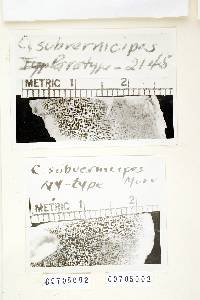 C. subvermicipes
Type Paratype - 2145
METRIC 1 2
C subvermicipes
NY-type Murr
METRIC 1 2
00705002 00705002